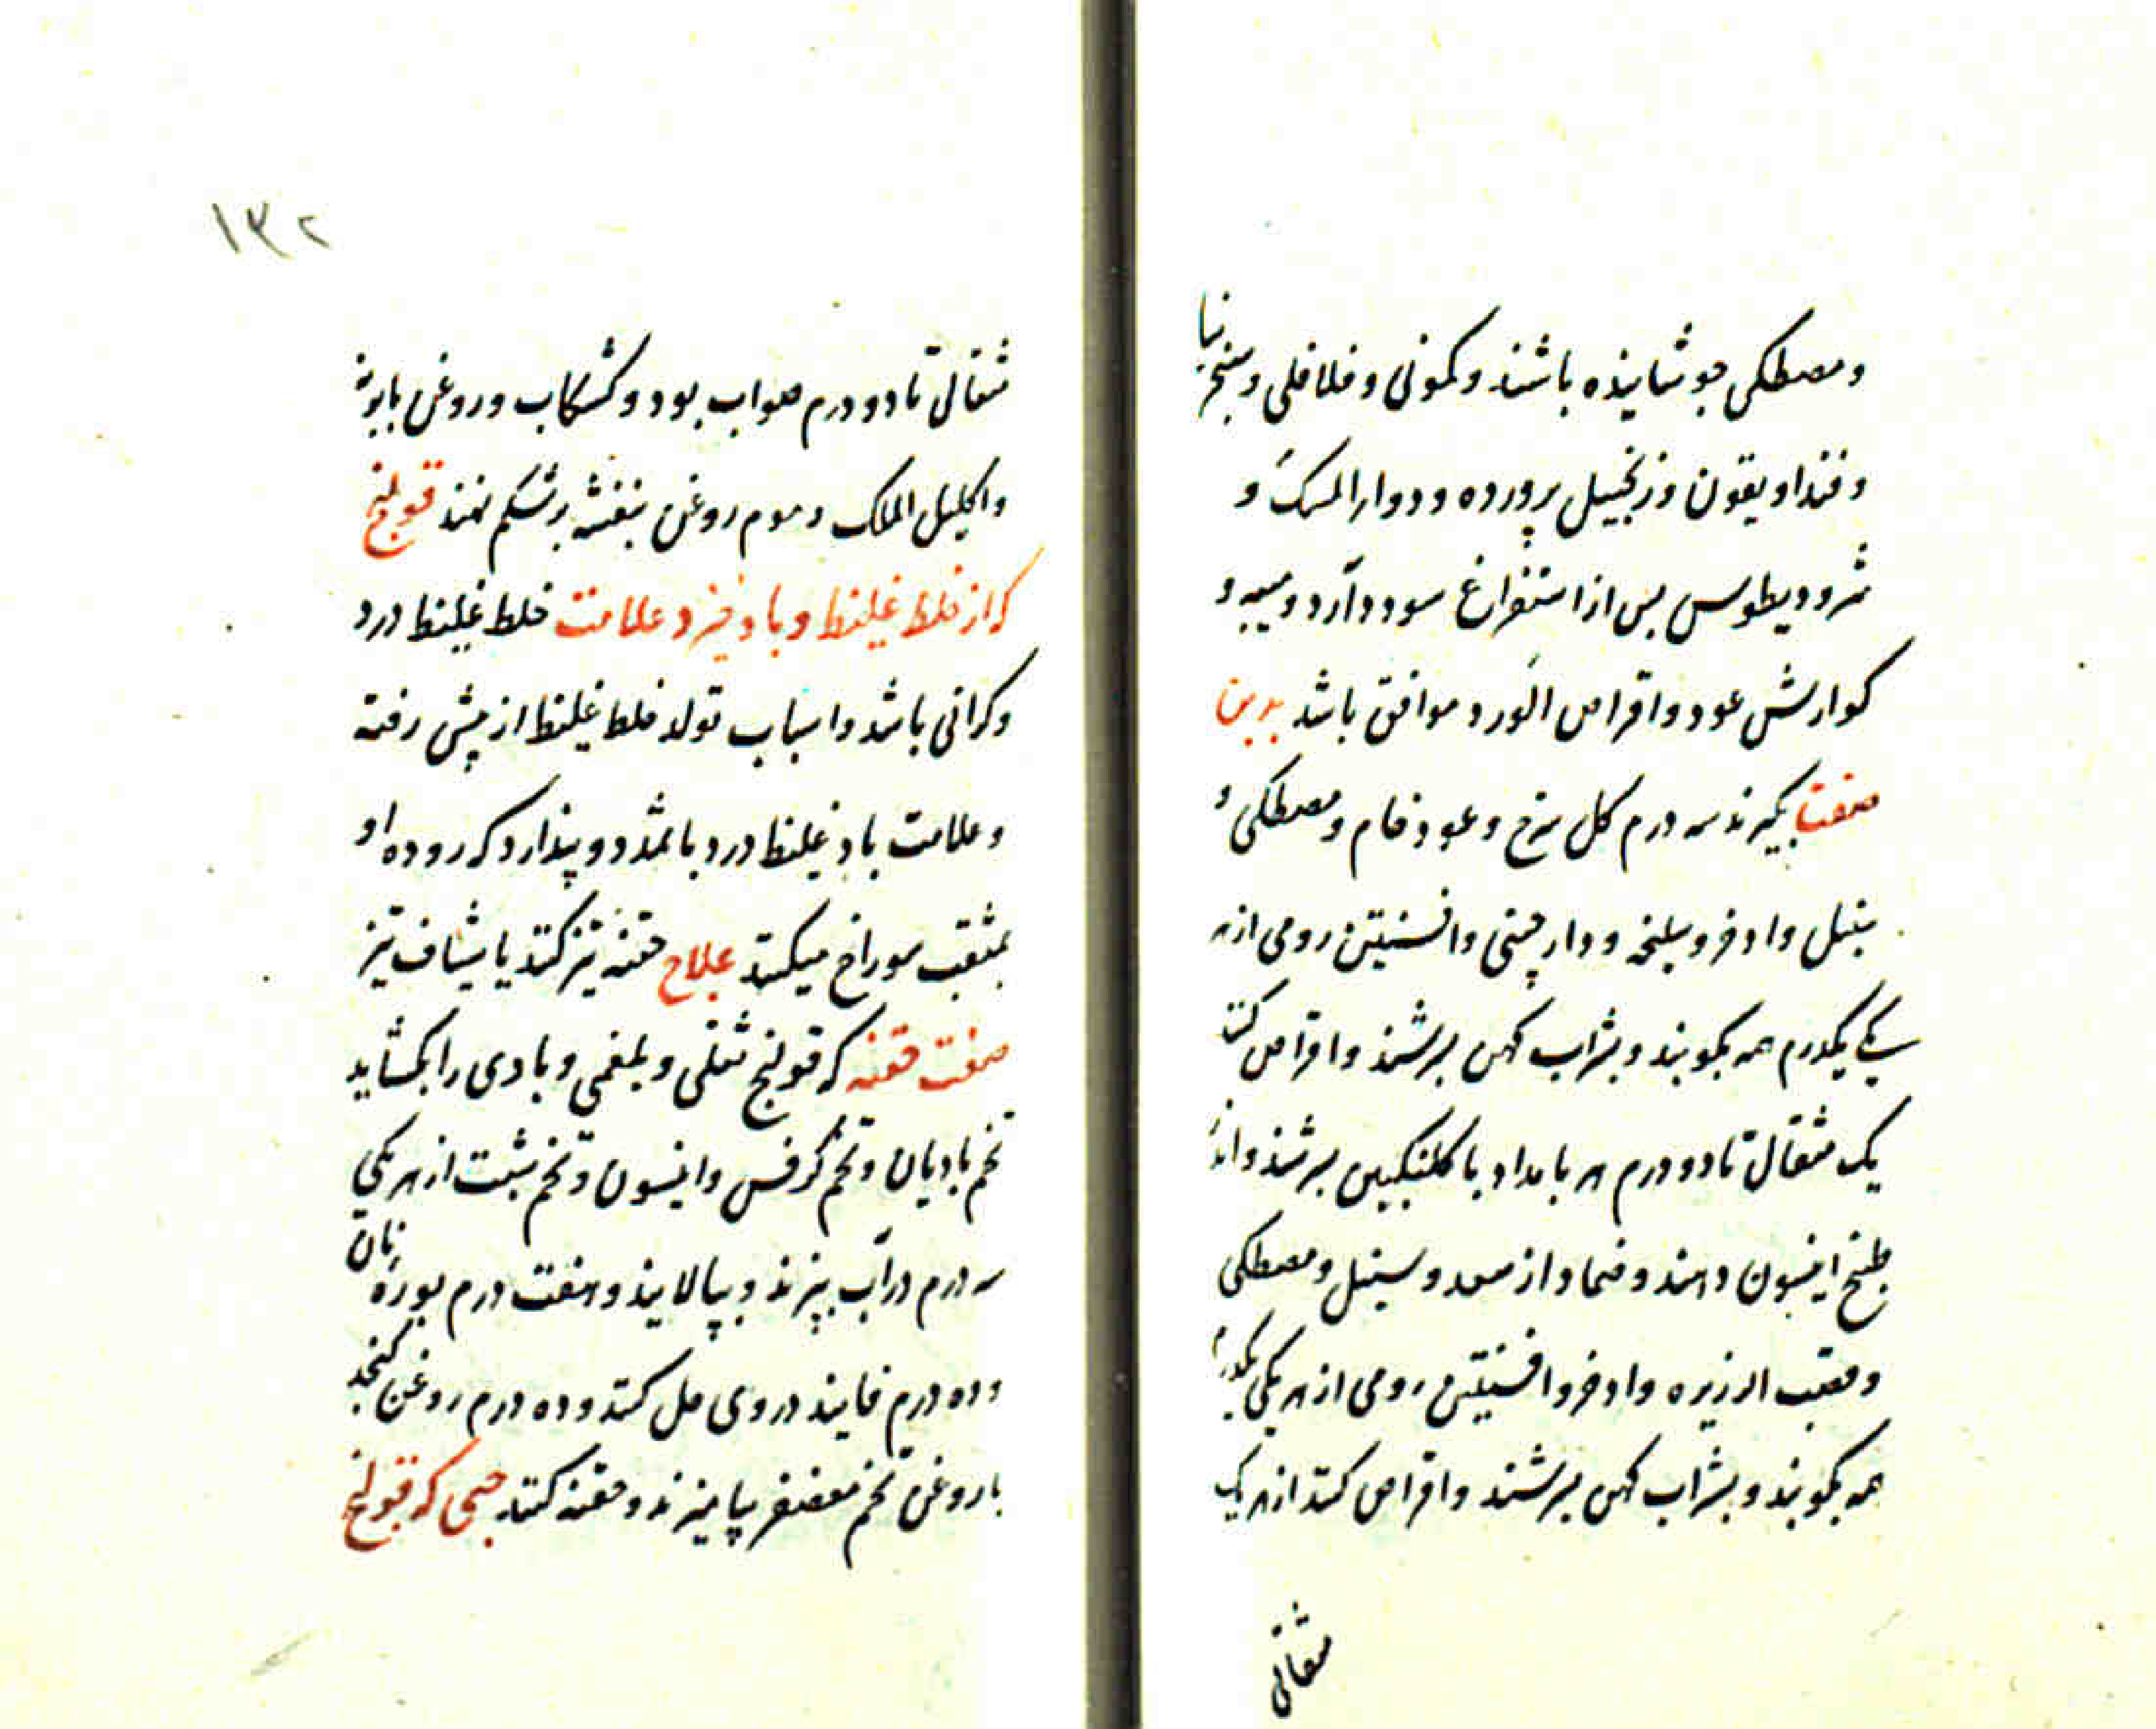 و مصطکی جوشانیده باشند و کمونی و فلافلی و سنجرنیا
و فنداویقون و زنجبیل پرورده و دوارالمسک و
ثرودیطوس پس از استفراغ سود دآرد و میبه و
کوارش عود و اقراص الورد موافق باشد بدین
صفت بکیرند سه درم کل سرخ و عود خام و مصطکی و
سنبل و اذخر و سلیخه و دارچینی و افسنتین رومی از هر
یکی یکدرم همه بکوبند و بشراب کهن بسرشند و اقراص کنند
یک مثقال تا دو درم هر بامداد با کلنکبین بسرشند و اندر
طبیخ انیسون دهند و ضماد از سعد و سنبل و مصطکی
و قصب الذریره و اذخر و افسنتین رومی از هر یکی یکدرم
همه بکوبند و بشراب کهن بسرشند و اقراص کنند از هر یک
مثقالی
۱۳۲
مثقال تا دو درم صواب بود و کشکاب و روغن بابونه
و اکلیل الملک و موم روغن بنفشه بر شکم نهند قولنج
که از خلط غلیظ و باد خیزد علامت خلط غلیظ درد
و کرانی باشد و اسباب تولد خلط غلیظ از پیش رفته
و علامت باد غلیظ درد با تمدد و پندارد که روده او
بمثقب سوراخ میکنند علاج حقنه تیز کنند یا شیاف تیز
صفت حقنه که قولنج ثفلی و بلغمی و بادی را بکشاید
تخم بادیان و تخم کرفس و انیسون و تخم شبت از هر یکی
سه درم در آب بپزند و بپالایند و هفت درم بوره نان
و ده درم فانیذ در وی حل کنند و ده درم روغن کنجد
با روغن تخم معصفر بیامیزند و حقنه کنند حبی که قولنج